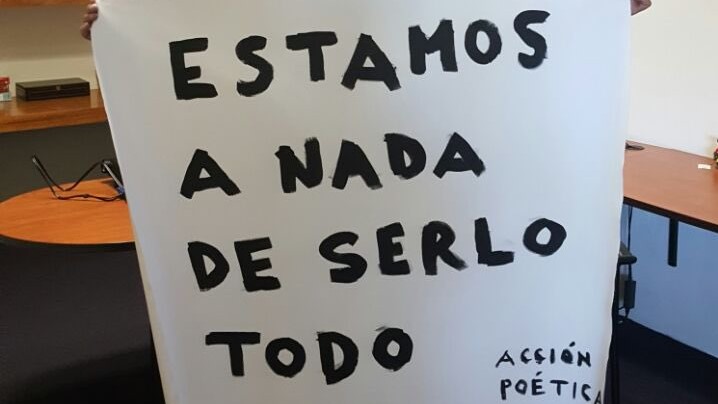 ESTAMOS
A NADA
DE SERLO
TODO
ACCIÓN
POÉTICA